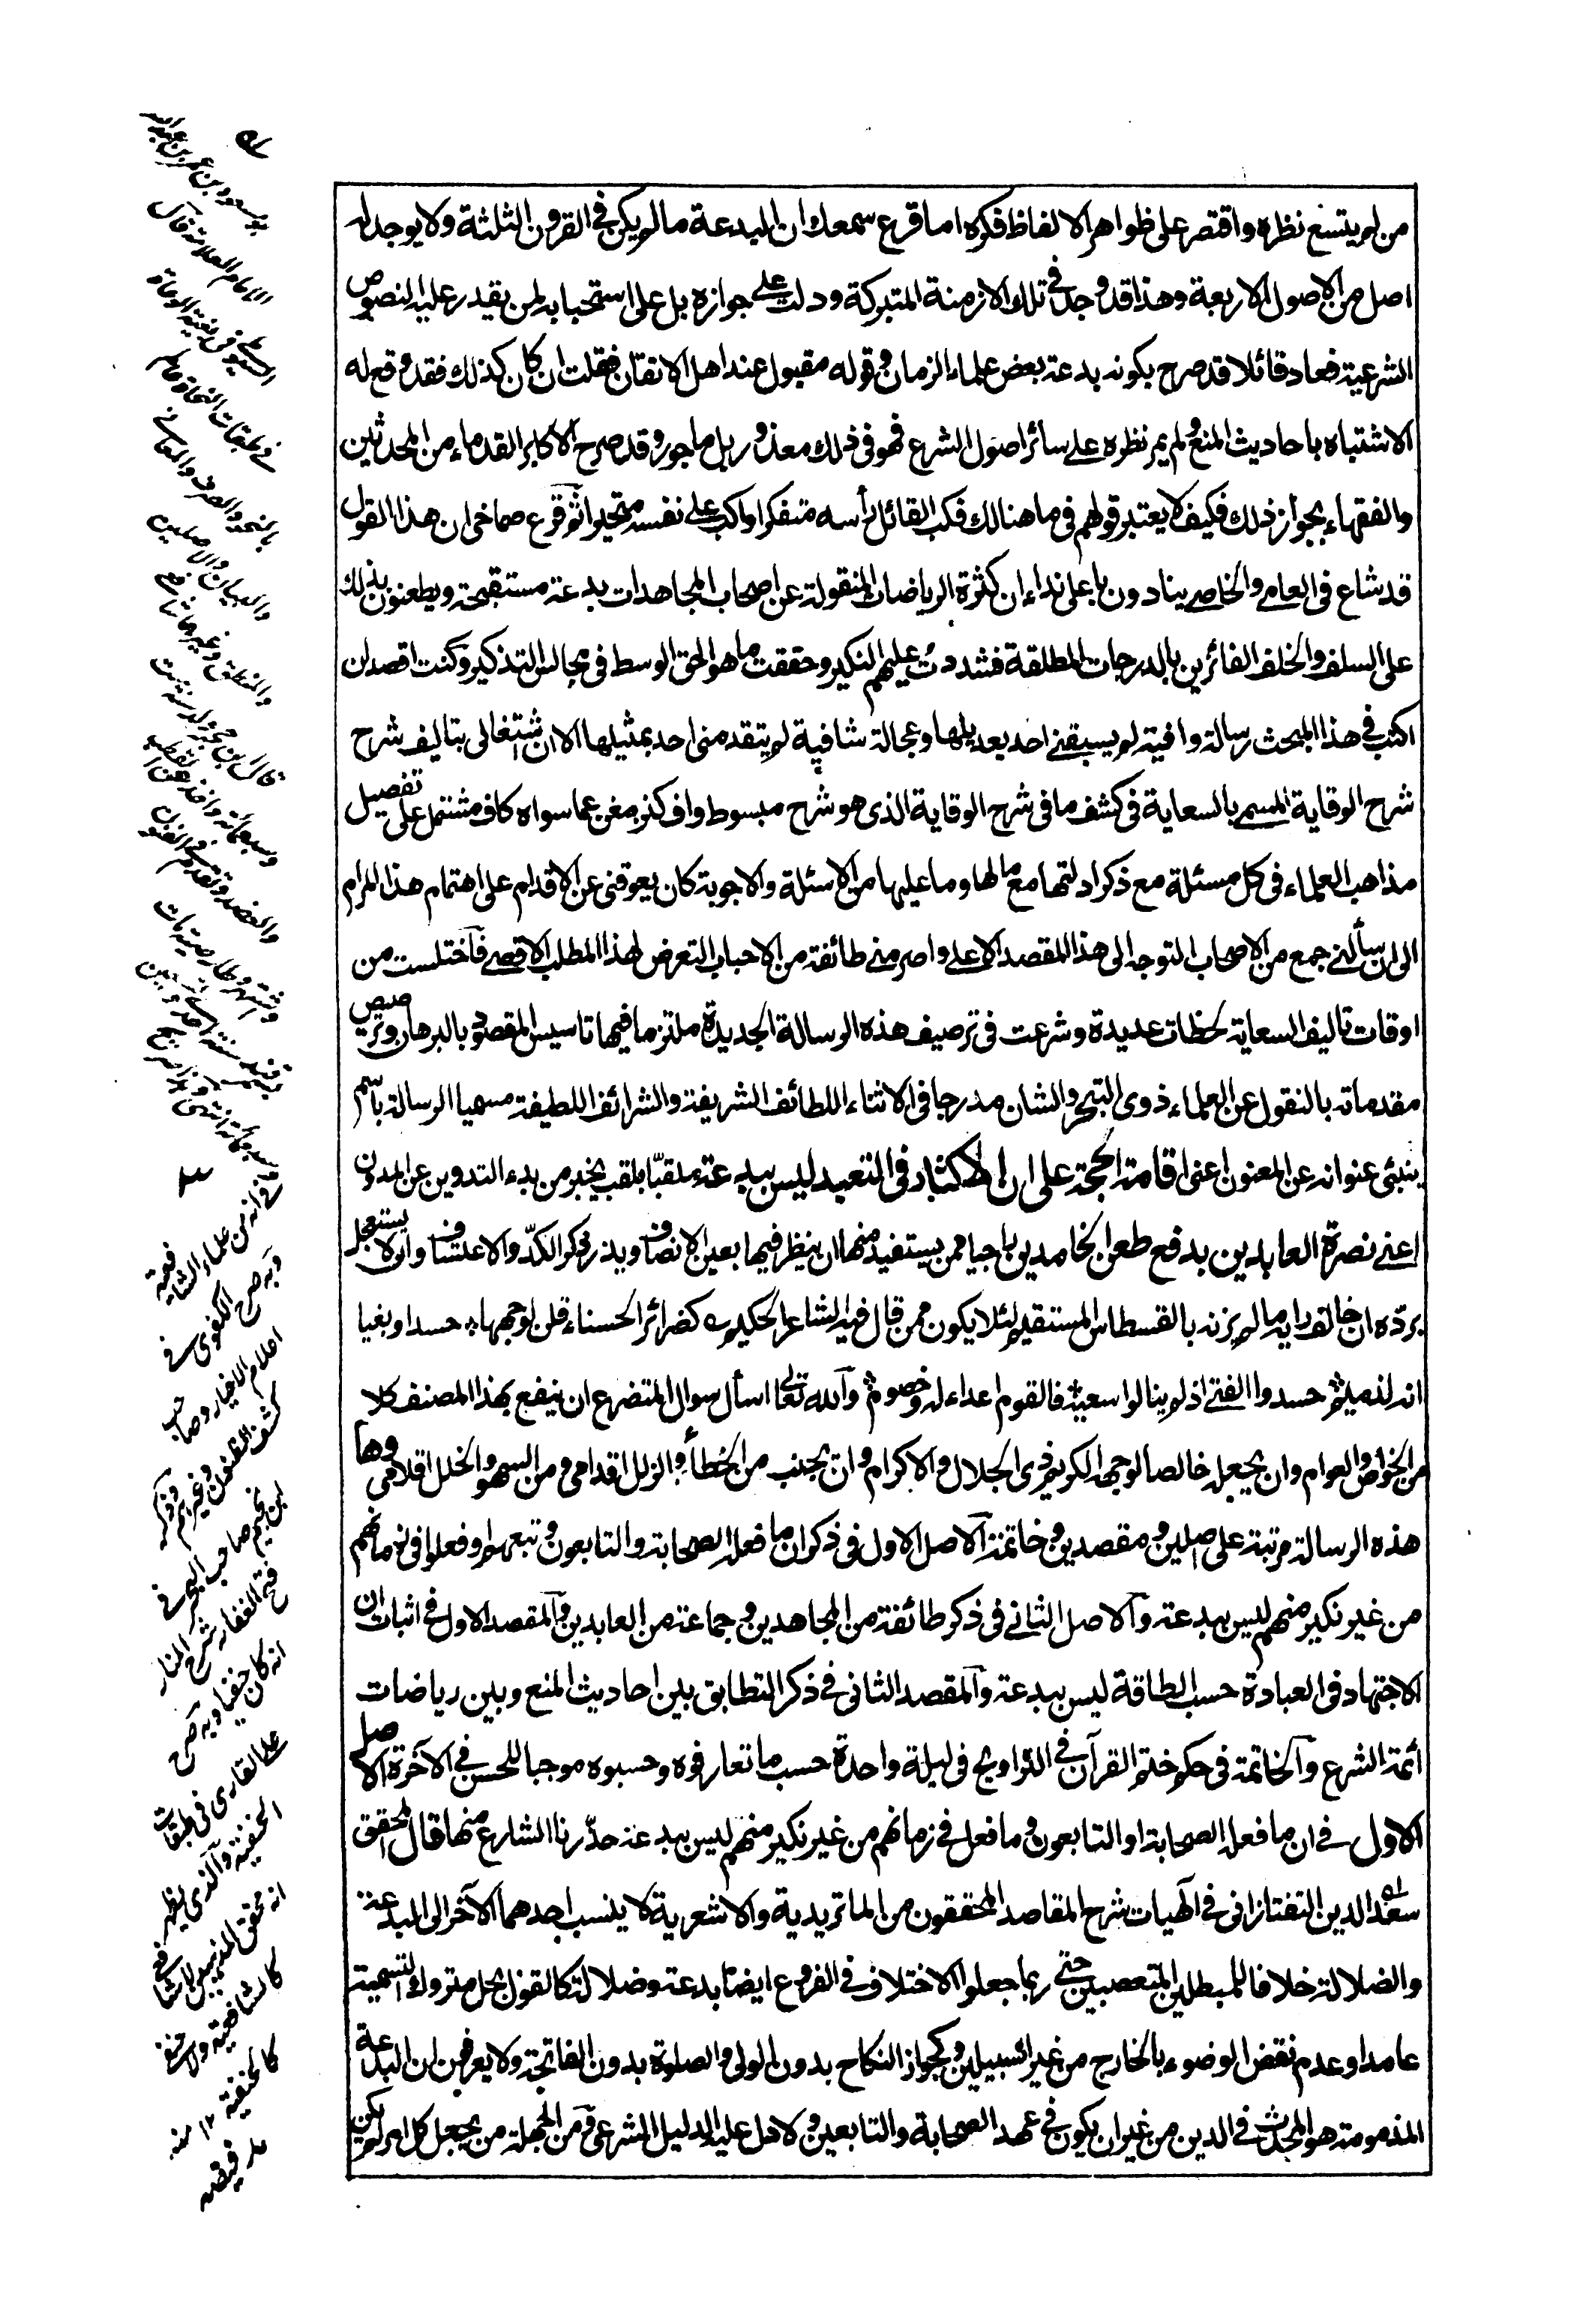 من لم يتسع نظره واقتصر على ظواهر الالفاظ فكره اما قرع سمعك ان البدعة ما لم يكن في القرون الثلثة ولا يوجد له
اصل من الاصول الاربعة وهذا قد وجد في تلك الازمنة المتبركة ودلت على جوازه بل على استحبابه لمن يقدر عليه النصوص
الشرعية فعاد قائلا قد صرح بكونه بدعة بعض علماء الزمان وقوله مقبول عند اهل الاتقان فقلت ان كان كذلك فقد وقع له
الاشتباه باحاديث المنع ولم يمر نظره على سائر اصول الشرع فهو في ذلك معذور بل ماجور وقد صرح الاكابر القدماء من المحدثين
والفقهاء بجواز ذلك فكيف لا يعتبر قولهم في ما هنالك فكب القائل رأسه متفكرا واكب على نفسه متحيرا ثم قرع صماخي ان هذا القول
قد شاع في العامي والخاصي ينادون باعلى نداء ان كثرة الرياضات المنقولة عن اصحاب المجاهدات بدعة مستقبحة ويطعنون بذلك
على السلف والخلف الفائزين بالدرجات المطلقة فشددت عليهم النكير وحققت ما هو الحق الوسط في مجالس التذكير وكنت اقصد ان
اكتب في هذا المبحث رسالة وافية لم يسبقني احد بعديلها وعجالة شافية لم يتقدمني احد بمثيلها الا ان اشتغالي بتاليف شرح
شرح الوقاية المسمى بالسعاية في كشف ما في شرح الوقاية الذي هو شرح مبسوط واف كنز مغن عما سواه كاف مشتمل على تفصيل
مذاهب العلماء في كل مسئلة مع ذكر ادلتها مع ما لها وما عليها من الاسئلة والاجوبة كان يعوقني عن الاقدام على اهتمام هذا المرام
الى ان سألني جمع من الاصحاب التوجه الى هذا المقصد الاعلى واصر مني طائفة من الاحباب التعرض لهذا المطلب الاقصى فاختلست من
اوقات تاليف السعاية لحظات عديدة وشرعت في ترصيف هذه الرسالة الجديدة ملتزما فيها تاسيس المقصود بالبرهان وترصيص
مقدماته بالنقول عن العلماء ذوي التبحر والشان مدرجا في الاثناء اللطائف الشريفة والشرائف اللطيفة مسميا الرسالة باسم
ينبئ عنوانه عن المعنون اعني اقامة الحجة على ان الاكثار في التعبد ليس ببدعة ملقبا بلقب يخبر من بدء التدوين عن المدون
اعني نصرة العابدين بدفع طعن الجامدين راجيا ممن يستفيد منها ان ينظر فيها بعين الانصاف ويذر فكر الكد والاعتساف وان لا يستعجل
برده ان خالف رايه ما لم يزنه بالقسطاس المستقيم لئلا يكون ممن قال فيه الشاعر الحكيم كضرائر الحسناء قلن لوجهها حسدا وبغيا
انه لذميم حسدوا الفتى اذ لم ينالوا سعيه فالقوم اعداء له وخصوم والله تعالى اسأل سوال المتضرع ان ينفع بهذا المصنف كلا
من الخواص والعوام وان يجعله خالصا لوجهه الكريم ذي الجلال والاكرام وان يجنب من الخطأ والزلل اقدامي ومن السهو والخلل اقلامي وها
هذه الرسالة مرتبة على اصلين ومقصدين وخاتمة الاصل الاول في ذكر ان ما فعله الصحابة والتابعون وتبعهم او فعلوا في زمانهم
من غير نكير منهم ليس ببدعة والاصل الثاني في ذكر طائفة من المجاهدين وجماعة من العابدين والمقصد الاول في اثبات ان
الاجتهاد في العبادة حسب الطاقة ليس ببدعة والمقصد الثاني في ذكر التطابق بين احاديث المنع وبين رياضات
ائمة الشرع والخاتمة في حكم ختم القرآن في التراويح في ليلة واحدة حسب ما تعارفوه وحسبوه موجبا للحسن في الآخرة الاصل
الاول في ان ما فعله الصحابة او التابعون وما فعل في زمانهم من غير نكير منهم ليس ببدعة حذرنا الشارع منها قال المحقق
سعد الدين التفتازاني في الهيات شرح المقاصد المحققون من الماتريدية والاشعرية لا ينسب احدهما الآخر الى البدعة
والضلالة خلافا للمبطلين المتعصبين حتى ربما جعلوا الاختلاف في الفروع ايضا بدعة وضلالة كالقول بحل متروك التسمية
عامدا وعدم نقض الوضوء بالخارج من غير السبيلين وكجواز النكاح بدون الولي والصلوة بدون الفاتحة ولا يعرفون ان البدعة
المذمومة هو المحدث في الدين من غير ان يكون في عهد الصحابة والتابعين ولا دل عليه الدليل الشرعي ومن الجهلة من يجعل كل امر لم يكن
مسعود بن عمر بن عبد الله
الامام العلامة قال
السيوطي في بغية الوعاة
في طبقات النحاة عالم
بالنحو والصرف والمعاني
والبيان والاصلين
والمنطق وغيرها شافعي
قال ابن حجر ولد سنة
وسبعمائة واخذ عن القطب
والعضد وتقدم في الفنون
واشتهر وطار صيته مات
بسمرقند سنة احدى وتسعين
وسبعمائة انتهى
انه من علماء الشافعية
وبه صرح الكفوي في
اعلام الاخيار وصاحب
كشف الظنون وغيرهم وذكر
ابن نجيم صاحب البحر في
فتح الغفار شرح المنار
انه كان حنفيا وبه صرح
علي القاري في طبقات
الحنفية والذي يظهر
انه محقق المذهبين
كالشافعية
كالحنفية ١٢ منه